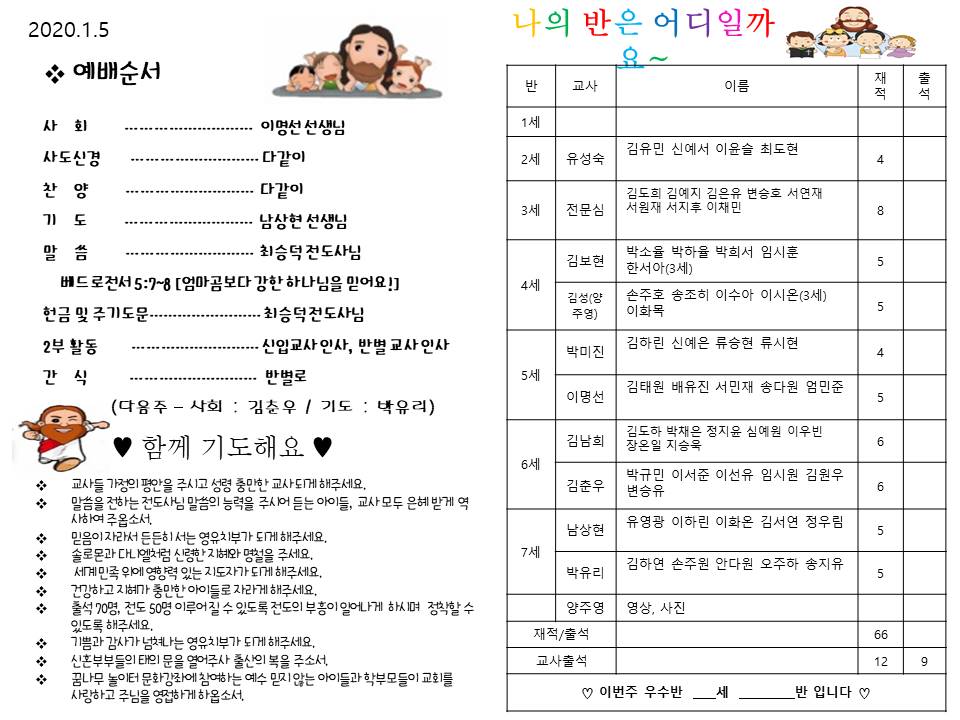 2020.1.5
❖ 예배순서
사 회 --------------------------- 이명선 선생님
사도신경 --------------------------- 다같이
찬 양 --------------------------- 다같이
기 도 --------------------------- 남상현 선생님
말 씀 --------------------------- 최승덕 전도사님
베드로전서 5:7~8 [엄마곰보다 강한 하나님을 믿어요!]
헌금 및 주기도문----------------------- 최승덕 전도사님
2부 활동 --------------------------- 신입교사 인사, 반별 교사 인사
간 식 --------------------------- 반별로
(다음주 – 사회 : 김춘우 / 기도 : 박유리)
♥ 함께 기도해요 ♥
❖ 교사들 가정의 평안을 주시고 성령 충만한 교사 되게 해주세요.
❖ 말씀을 전하는 전도사님 말씀의 능력을 주시어 듣는 아이들, 교사 모두 은혜 받게 역
사하여 주옵소서.
❖ 믿음이 자라서 든든히 서는 영유치부가 되게 해주세요.
❖ 솔로몬과 다니엘처럼 신령한 지혜와 명철을 주세요.
❖ 세계 민족 위에 영향력 있는 지도자가 되게 해주세요.
❖ 건강하고 지혜가 충만한 아이들로 자라게 해주세요.
❖ 출석 70명, 전도 50명 이루어 질 수 있도록 전도의 부흥이 일어나게 하시며 정착할 수
있도록 해주세요.
❖ 기쁨과 감사가 넘쳐나는 영유치부가 되게 해주세요.
❖ 신혼부부들의 태의 문을 열어주사 출산의 복을 주소서.
❖ 꿈나무 놀이터 문화강좌에 참여하는 예수 믿지 않는 아이들과 학부모들이 교회를
사랑하고 주님을 영접하게 하옵소서.
나의 반은 어디일까
요~
반 교사 이름 재적 출석
1세
2세 유성숙 김유민 신예서 이윤슬 최도현 4
3세 전문심 김도희 김예지 김은유 변승호 서연재
서원재 서지후 이채민 8
4세 김보현 박소율 박하율 박희서 임시훈
한서아(3세) 5
김성(양주영) 손주호 송조히 이수아 이시온(3세)
이화목 5
5세 박미진 김하린 신예은 류승현 류시현 4
이명선 김태원 배유진 서민재 송다원 엄민준 5
6세 김남희 김도하 박채은 정지윤 심예원 이우빈
장온일 지승욱 6
김춘우 박규민 이서준 이선유 임시원 김원우
변승유 6
7세 남상현 유영광 이하린 이화온 김서연 정우림 5
박유리 김하연 손주원 안다원 오주하 송지유 5
양주영 영상, 사진
재적/출석 66
교사출석 12 9
♡ 이번주 우수반 ___세 ________반 입니다 ♡